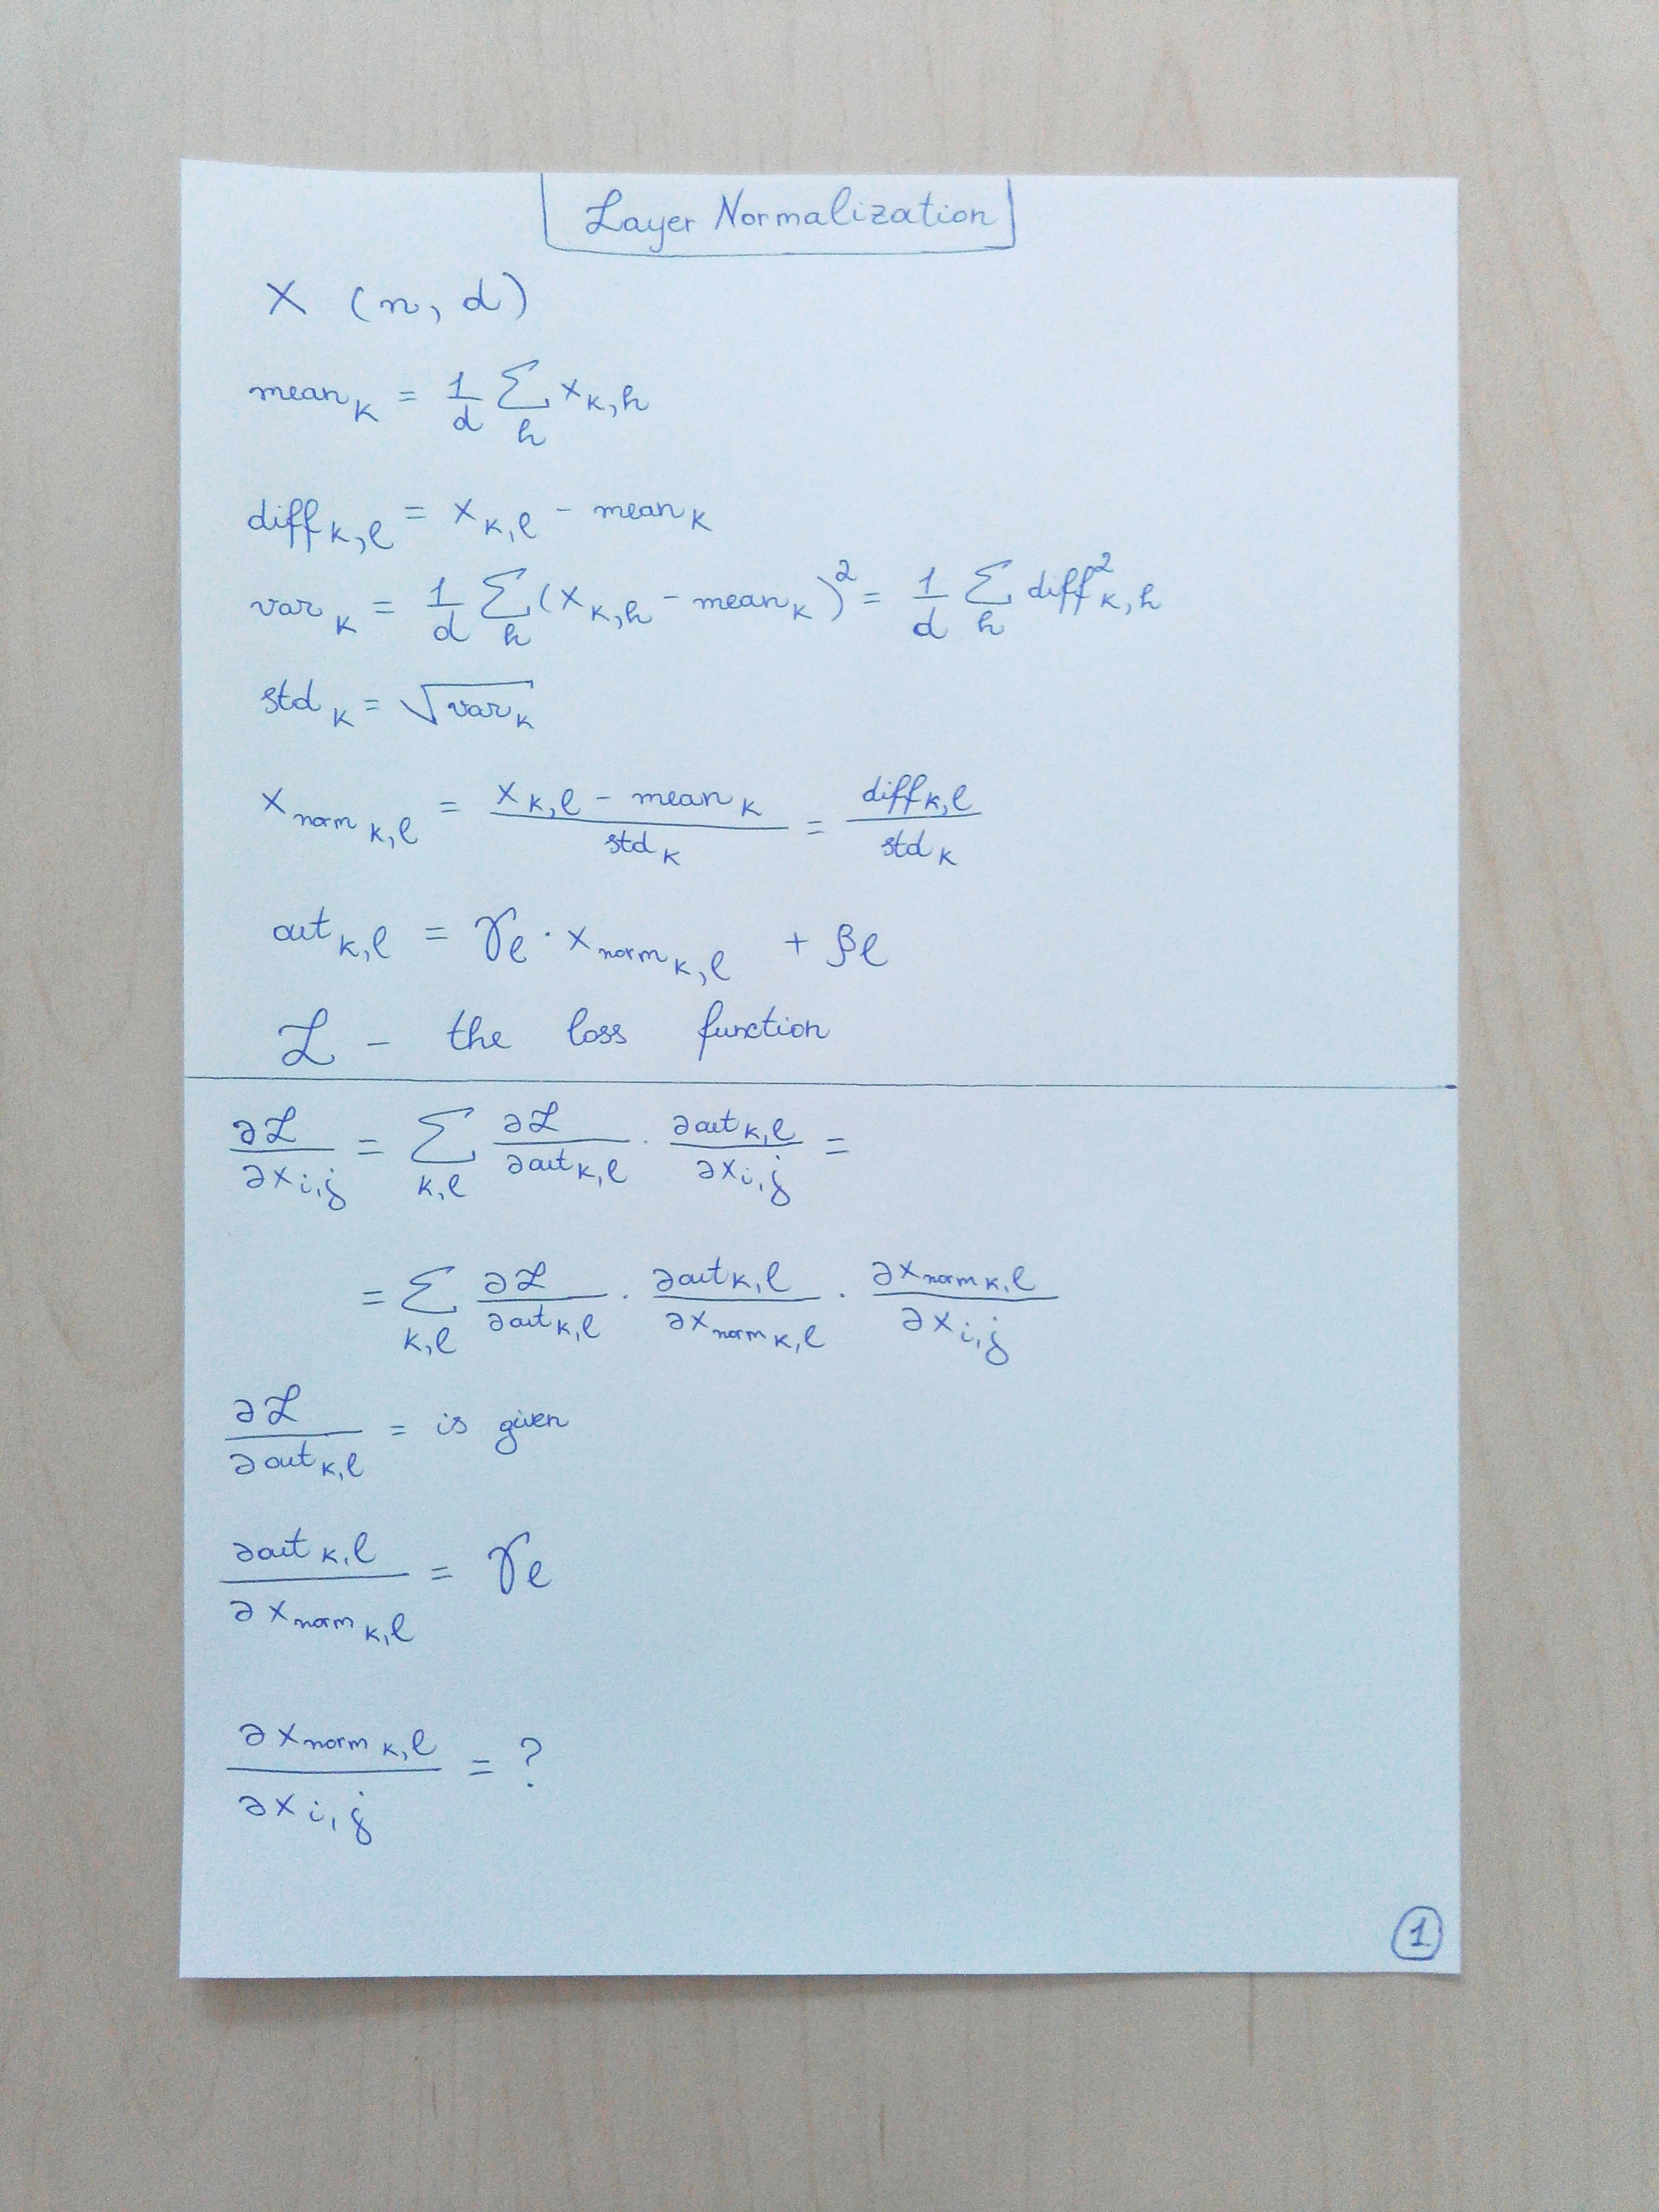 Layer Normalization
X (n, d)
mean_k = 1/d ∑_h x_{k,h}
diff_{k,l} = x_{k,l} - mean_k
var_k = 1/d ∑_h (x_{k,h} - mean_k)^2 = 1/d ∑_h diff^2_{k,h}
std_k = √var_k
x_{norm k,l} = (x_{k,l} - mean_k)/std_k = diff_{k,l}/std_k
out_{k,l} = γ_l · x_{norm k,l} + β_l
ℒ - the loss function
∂ℒ/∂x_{i,j} = ∑_{k,l} ∂ℒ/∂out_{k,l} · ∂out_{k,l}/∂x_{i,j} =
= ∑_{k,l} ∂ℒ/∂out_{k,l} · ∂out_{k,l}/∂x_{norm k,l} · ∂x_{norm k,l}/∂x_{i,j}
∂ℒ/∂out_{k,l} = is given
∂out_{k,l}/∂x_{norm k,l} = γ_l
∂x_{norm k,l}/∂x_{i,j} = ?
1